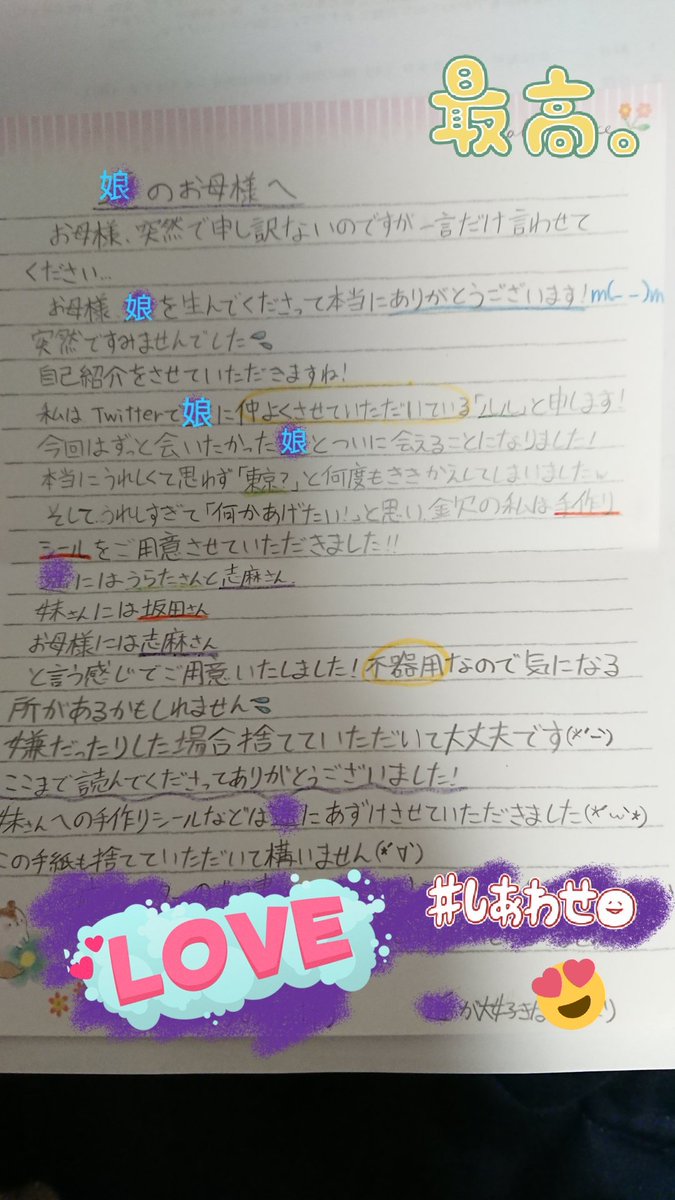 最高。
娘のお母様へ
お母様、突然で申し訳ないのですが一言だけ言わせて
ください…
お母様 娘を生んでくださって本当にありがとうございます!m(_ _)m
突然ですみませんでした
自己紹介をさせていただきますね!
私はTwitterで娘に仲よくさせていただいている「ルル」と申します!
今回はずっと会いたかった娘とついに会えることになりました!
本当にうれしくて思わず「東京?」と何度もききかえしてしまいましたw
そして、うれしすぎて「何かあげたい!」と思い、金欠の私は手作り
シールをご用意させていただきました!!
にはうらたさんと志麻さん
妹さんには坂田さん
お母様には志麻さん
と言う感じでご用意いたしました!不器用なので気になる
所があるかもしれません
嫌だったりした場合捨てていただいて大丈夫です(*'-')
ここまで読んでくださってありがとうございました!
妹さんへの手作りシールなどは にあずけさせていただきました(*'ω'*)
この手紙も捨てていただいて構いません(*'∀')
LOVE
#しあわせ
が大好きな